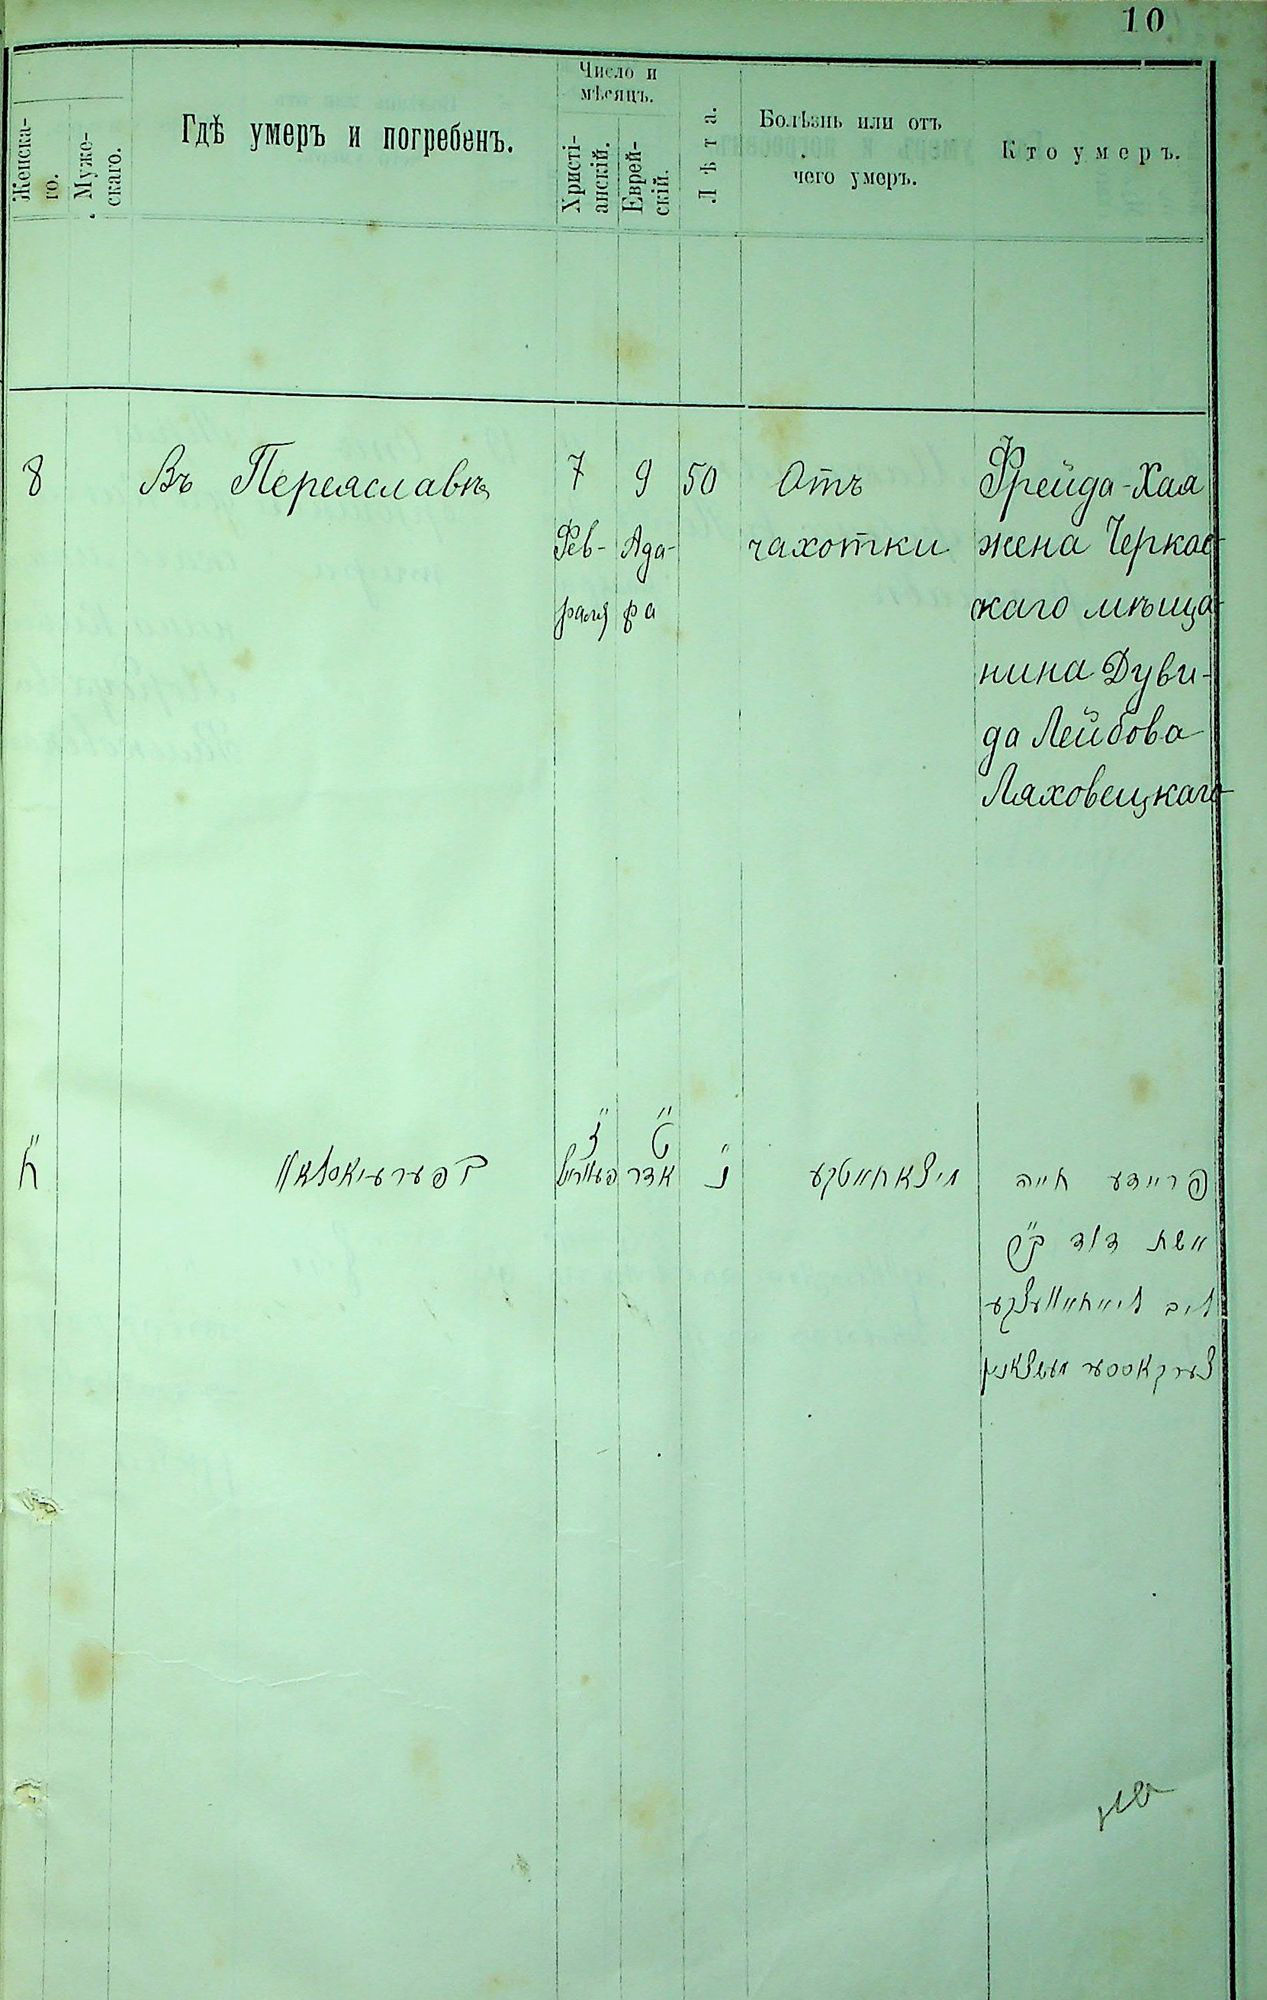 10
Женска-
го.
Муже-
скаго.
Гдѣ умеръ и погребенъ.
Число и
мѣсяцъ.
Христі-
анскій.
Еврей-
скій.
Лѣта.
Болѣзнь или отъ
чего умеръ.
Кто умеръ.
8
Въ Переяславѣ
7
Фев-
раля
9
Ада-
ра
50
Отъ
чахотки
Фрейда-Хая
жена Черкас-
скаго мѣща-
нина Дуви-
да Лейбова
Ляховецкаго
ח"
ז"
ט"
אדר
נ"
פריידע חייה
אשת דוד ב"ר
ליב